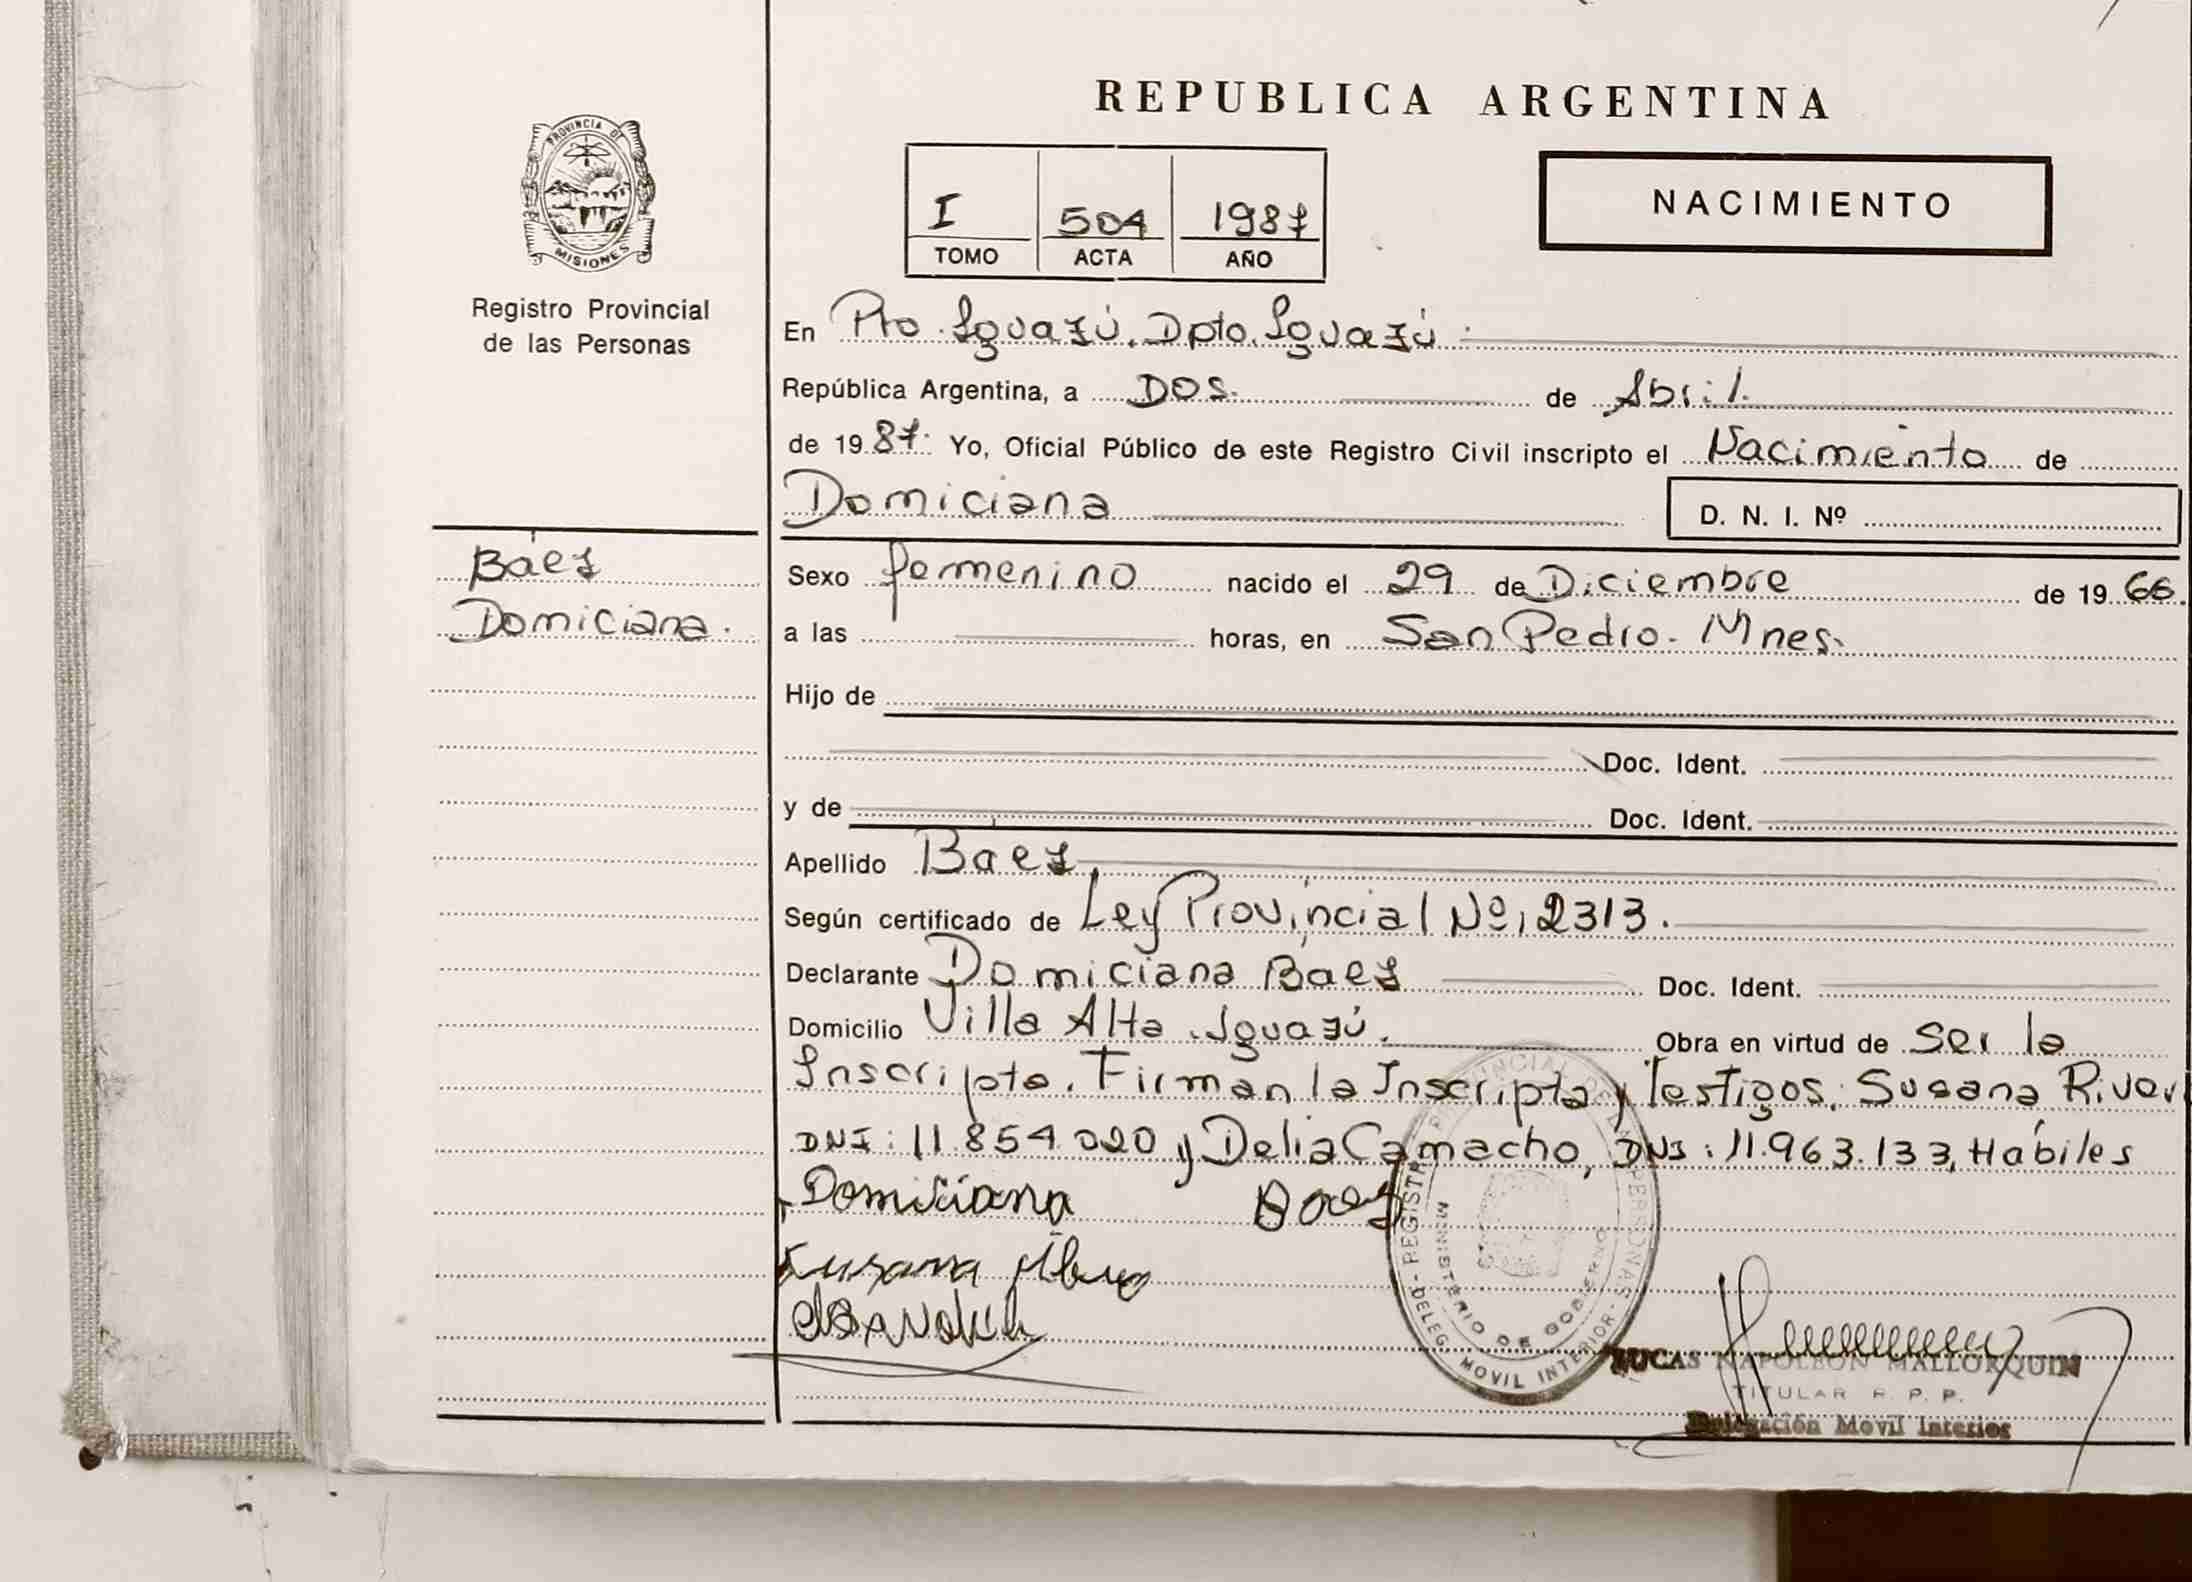 REPUBLICA ARGENTINA
PROVINCIA DE MISIONES
Registro Provincial
de las Personas
I 504 1987
TOMO ACTA AÑO
NACIMIENTO
En Pto. Iguazú. Dpto. Iguazú.
República Argentina, a DOS. de Abril.
de 1987. Yo, Oficial Público de este Registro Civil inscripto el Nacimiento de
Domiciana D. N. I. Nº
Báez
Domiciana.
Sexo femenino nacido el 29 de Diciembre de 1966.
a las horas, en San Pedro. Mnes.
Hijo de
Doc. Ident.
y de Doc. Ident.
Apellido Báez
Según certificado de Ley Provincial Nº, 2313.
Declarante Domiciana Baez Doc. Ident.
Domicilio Villa Alta. Iguazú. Obra en virtud de ser la
Inscripta. Firman la Inscripta y Testigos: Susana River
DNI: 11.854.020 y Delia Camacho, DNI: 11.963.133, Hábiles
Domiciana Baez
Susana
REGISTRO PROVINCIAL DE LAS PERSONAS
MINISTERIO DE GOBIERNO
DELEG. MOVIL INTERIOR
LUCAS NAPOLEON MALLORQUIN
TITULAR R. P. P.
Delegación Movil Interior